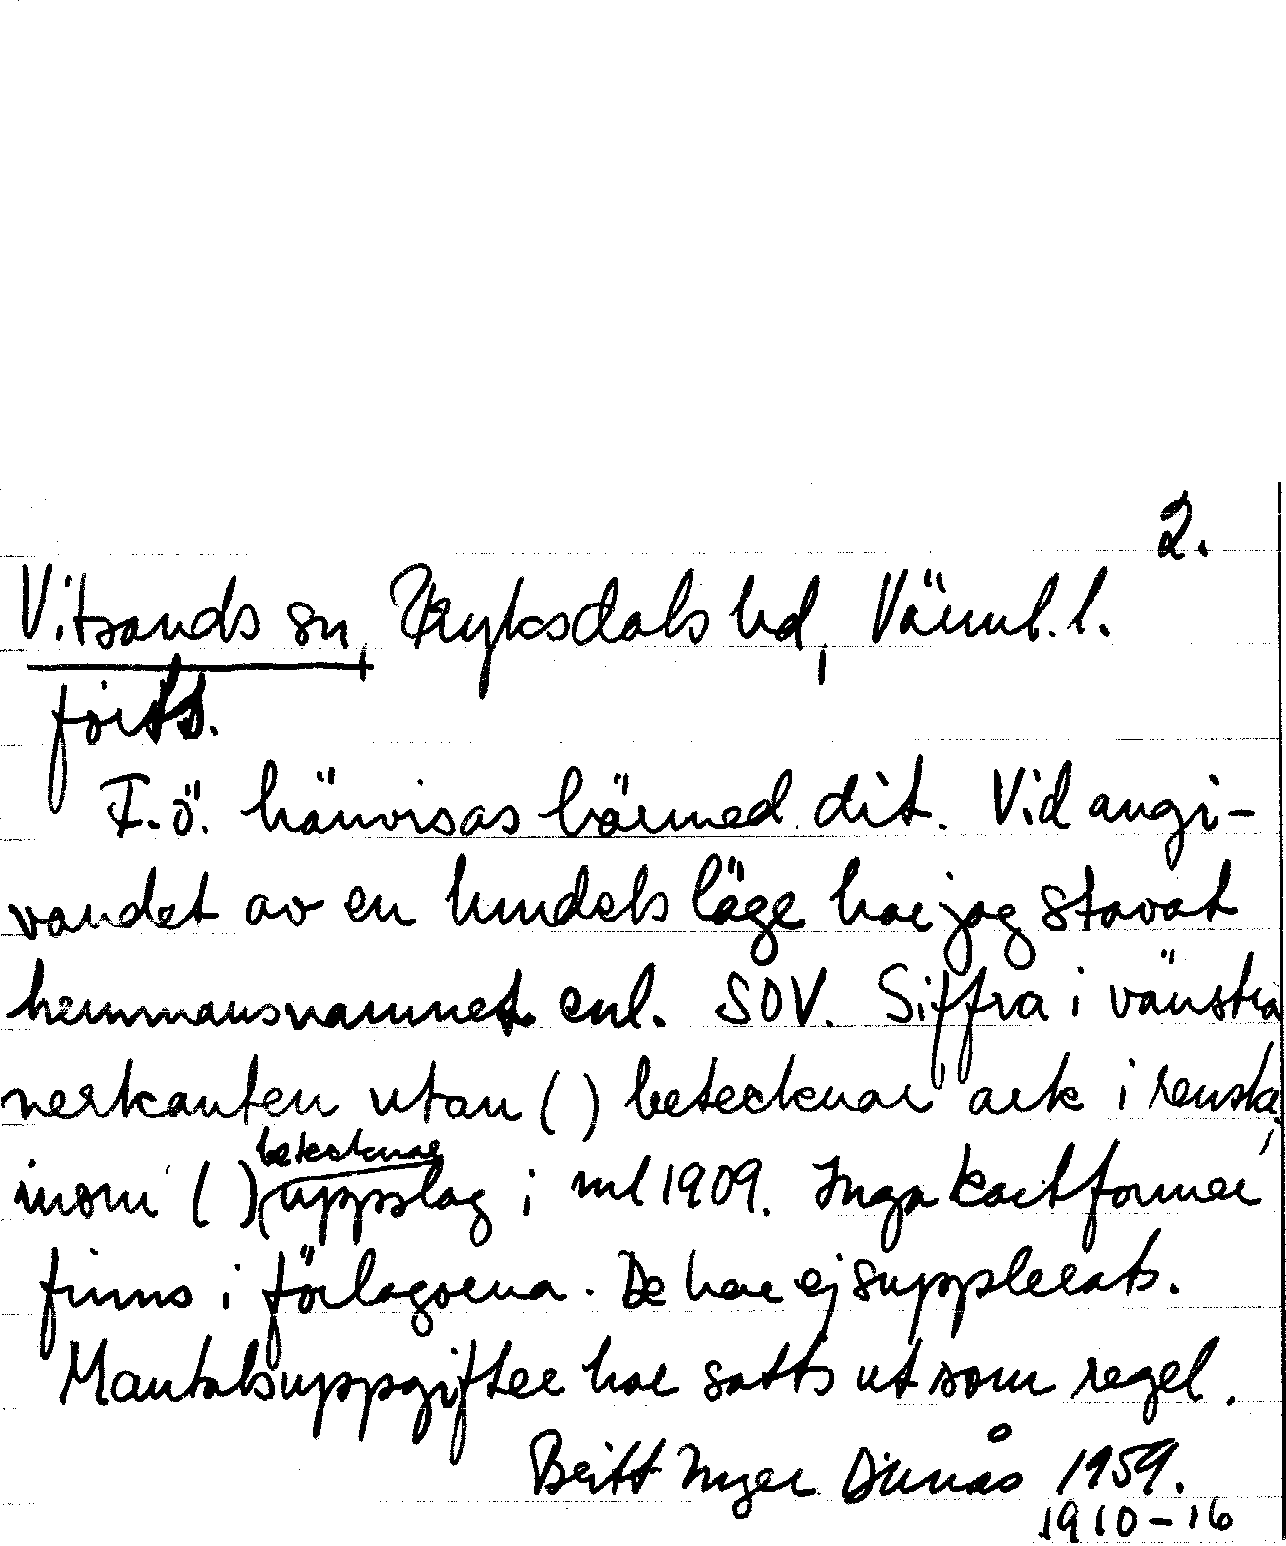 2.
Vitsands sn, Fryksdals hd, Värml. l.
forts.
F.ö. hänvisas härmed dit. Vid angi-
vandet av en hmdels läge har jag stavat
hemmansnamnet enl. SOV. Siffra i vänstra
nerkanten utan ( ) betecknar ark i renskr.
inom ( ) betecknar uppslag i ml 1909. Inga kartformer
finns i förlagorna. De har ej supplerats.
Mantalsuppgifter har satts ut som regel.
Britt Inger 1959.
1910-16